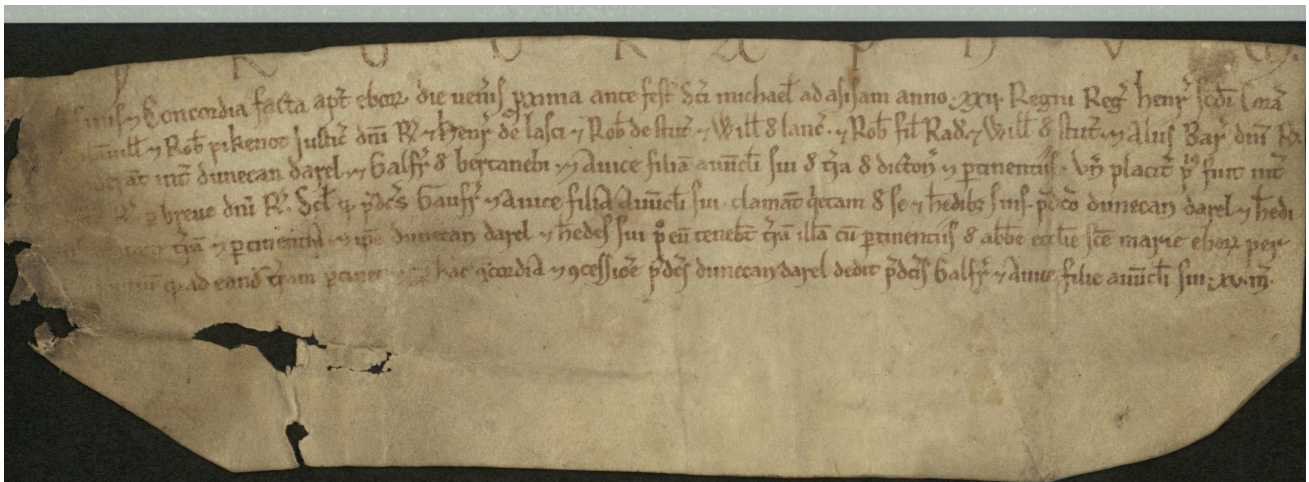 C Y R O G R A P H V M
finis & Concordia facta apt̄ ebor̄. die ueneris p̄xima ante fest̄ Sc̄i michael̄ ad asisam anno .xxii. Regni Reḡ henr̄ sc̄di Corā
Rob̄ pikenot Justic̄ dn̄i R̄. & henr̄ de lasci & Rob̄ de stut̄. & Will̄ d̄ lanc̄. & Rob̄ fil̄ Rad̄. & Will̄ d̄ stut̄. & Aliis Bar̄ dn̄i R̄.
int̄ dunecan darel & Galfr̄ d̄ bertanebi & Auice filiā auūcli sui d̄ t̄ra d̄ dictoñ & ptinentiis. Vn̄ placit̄ p̄us fuit int̄
p breue dn̄i R̄. Scl̄ qđ p̄dc̄s Gaufr̄ & Auice filia Auūcli sui clamāt q̄etam d̄ se & h̄edibꝫ suis. p̄dc̄o dunecan darel & h̄edi
t̄rā & ptinentiis & ipse dunecan darel & h̄edes sui p̄ eū tenebt̄ t̄rā illā cū ptinentiis d̄ abb̄e eccl̄ie sc̄e marie ebor̄ per
qđ ad eand̄ t̄ram ptinet & p hac ꝯcordia & ꝯcessiōe p̄dc̄s dunecan darel dedit p̄dc̄is Galfr̄ & Auice filie auūcli sui .xv. m̄.